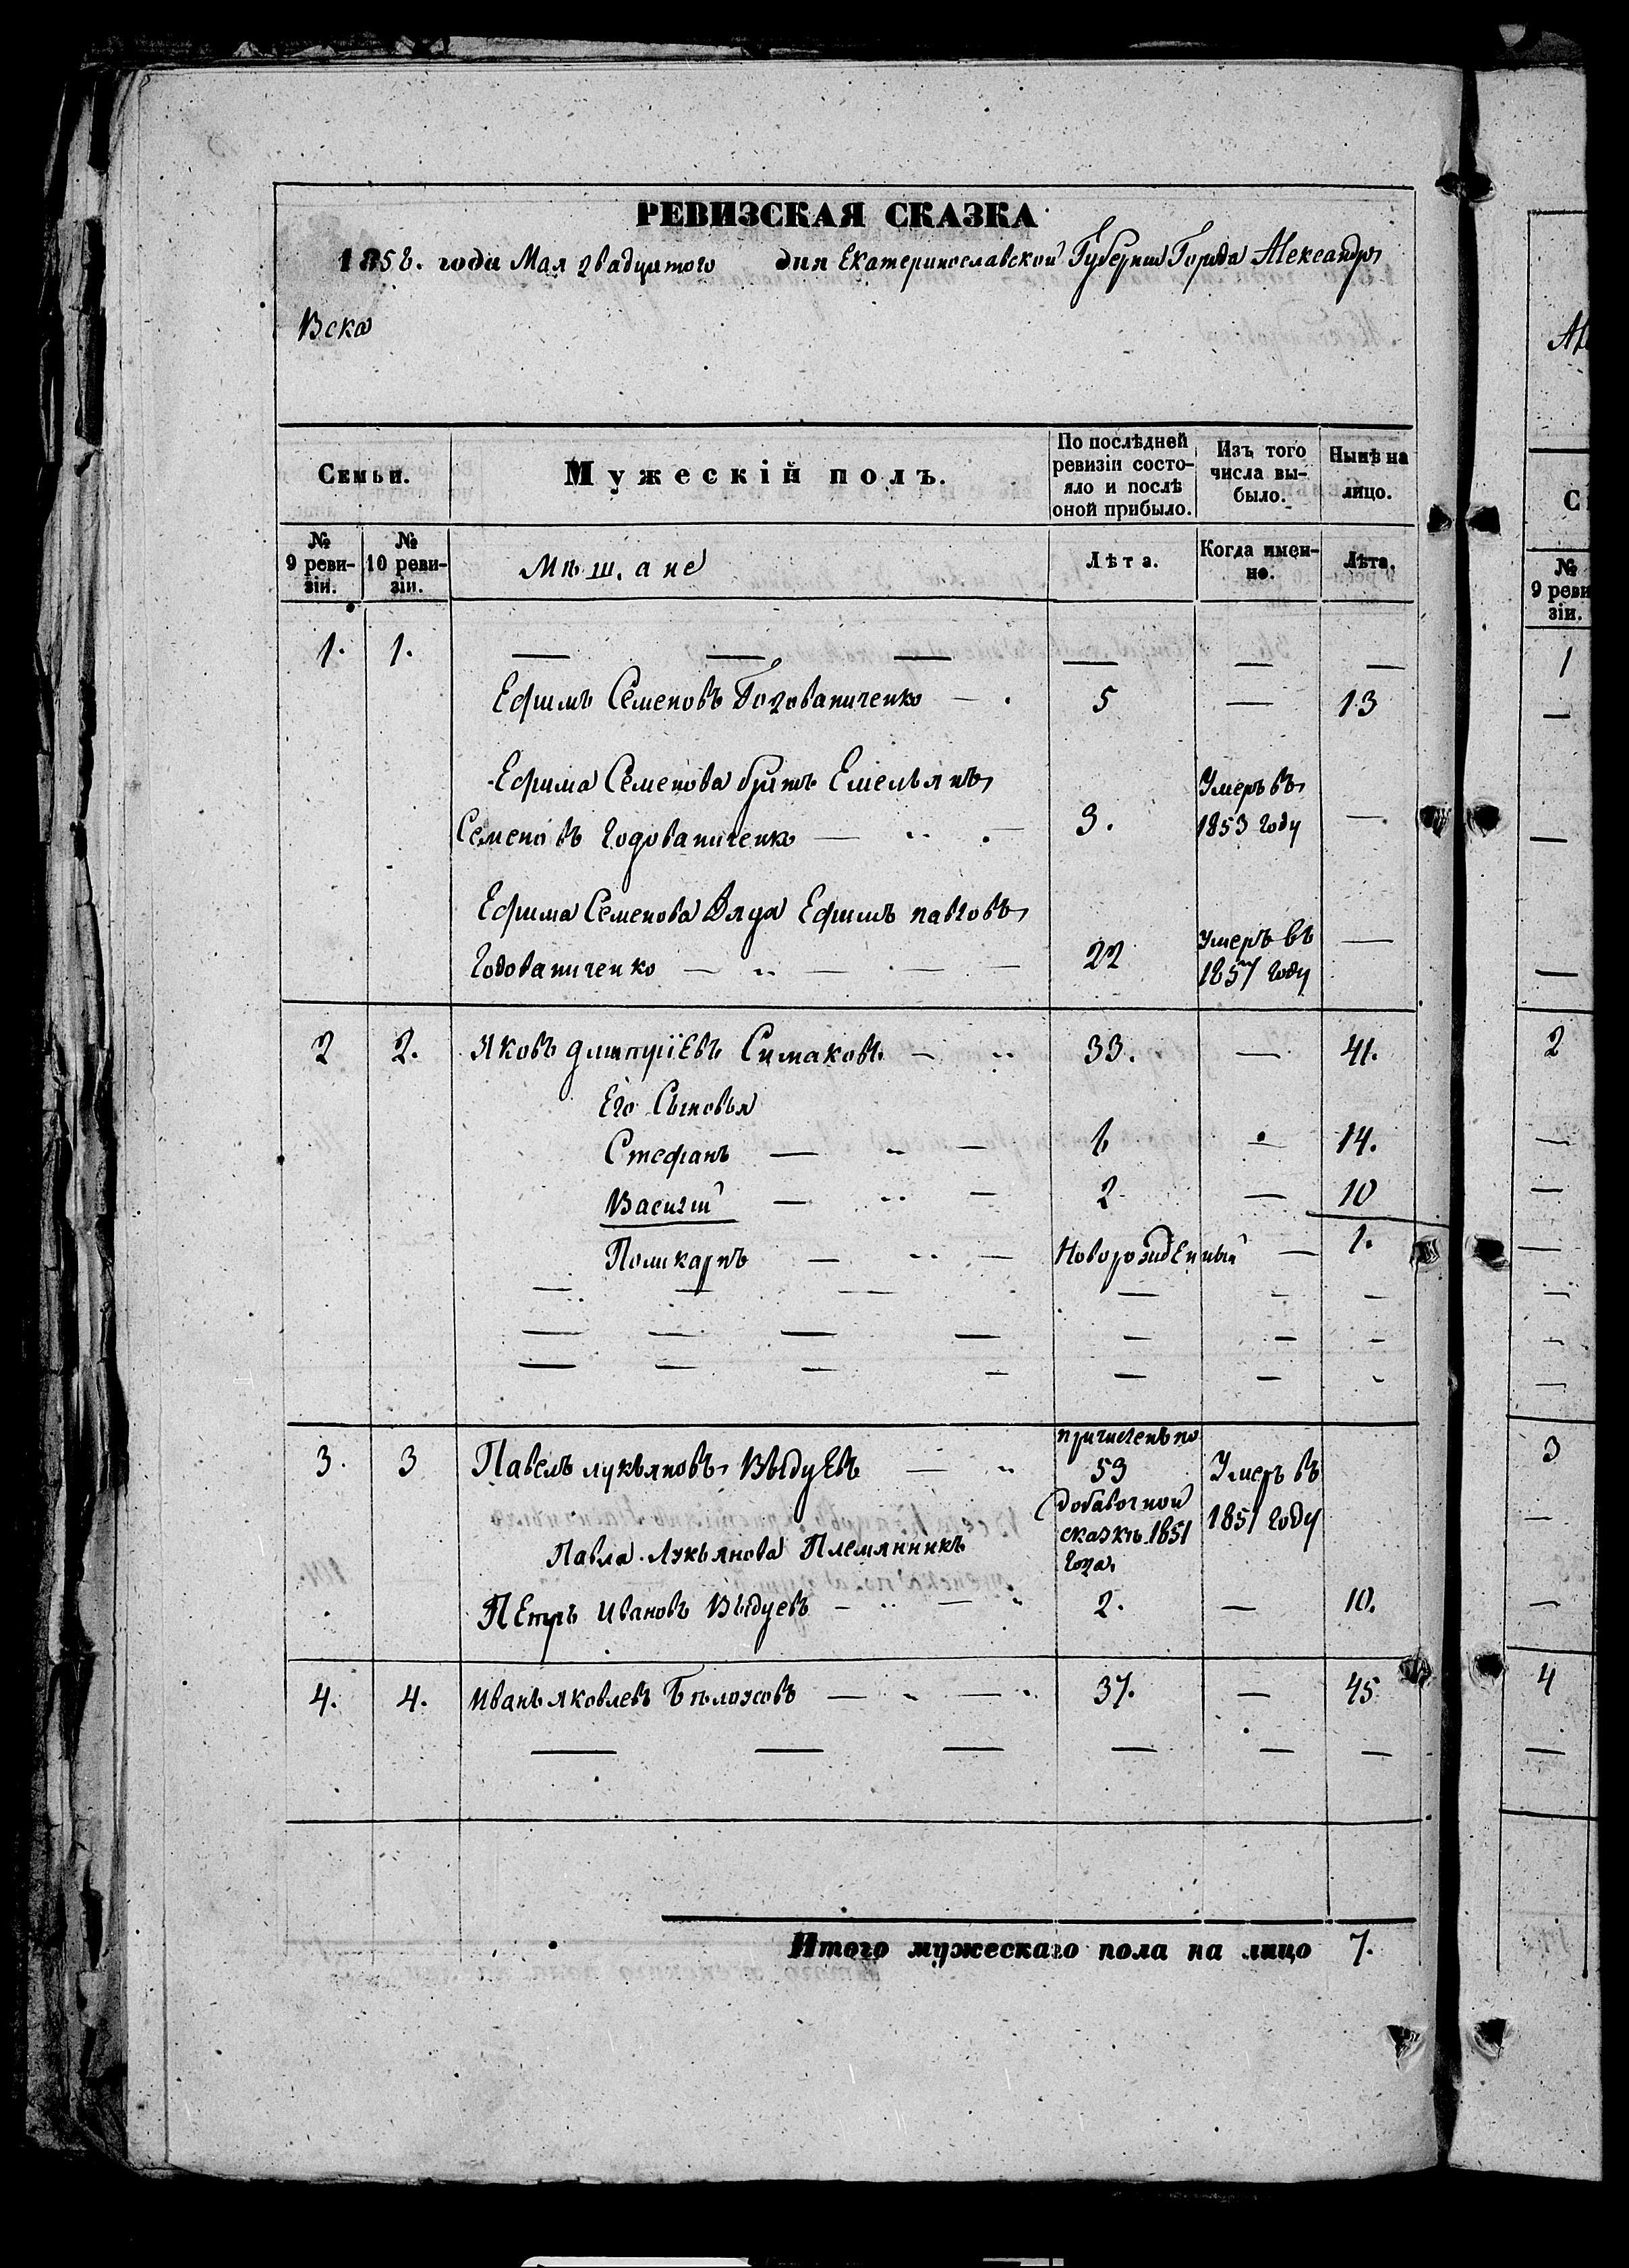 РЕВИЗСКАЯ СКАЗКА
1858. года Мая двадцятого дня Екатеринославской Губернии Города Александро
вска
Семьи.
Мужескій полъ.
По послѣдней ревизіи состо-яло и послѣ оной прибыло.
Изъ того числа вы-было.
Нынѣ на лицо.
№ 9 реви-зіи.
№ 10 реви-зіи.
Мѣщане
Лѣта.
Когда имен-но.
Лѣта.
1. 1. — — — — — —
Ефимъ Семеновъ Годованиченко — 5 — 13
Ефима Семенова братъ Емельянъ
Семеновъ Годованиченко — 3. Умеръ въ 1853 году —
Ефима Семенова Дядя Ефимъ Павловъ
Годованиченко — 22 Умеръ въ 1857 году —
2 2. Яковъ Дмитріевъ Симаковъ — 33. — 41.
Его Сыновья
Стефанъ — 6 — 14.
Василій — 2 — 10
Поликарпъ — Новорожденный — 1.
3. 3 Павелъ Лукьяновъ Выдуевъ — причисленъ по 53 добавочной сказкѣ 1851 года. Умеръ въ 1851 году
Павла Лукьянова Племянникъ
Петръ Ивановъ Выдуевъ — 2. — 10.
4. 4. Иванъ Яковлевъ Бѣлоусовъ — 37. — 45
— — — — — —
Итого мужескаго пола на лицо 7.
№ 9 реви зіи.
1
2
3
4